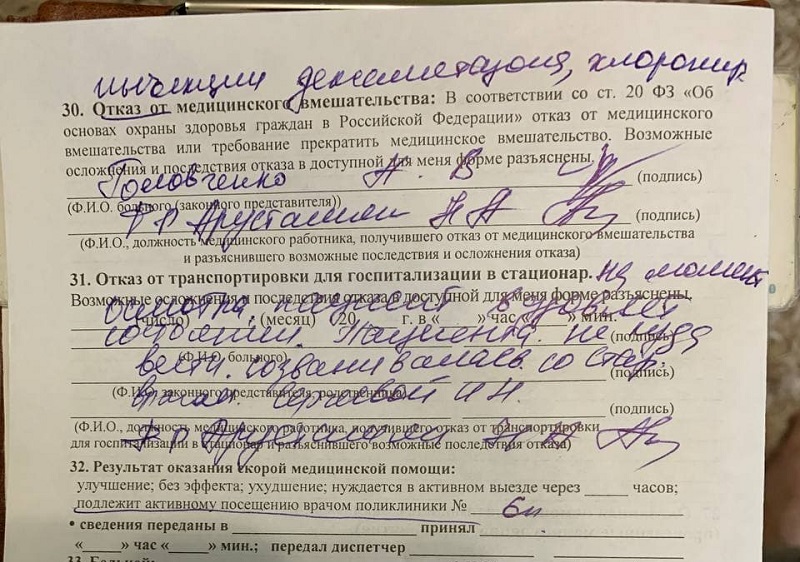 инъекции дексаметазона, хлоропир
30. Отказ от медицинского вмешательства: В соответствии со ст. 20 ФЗ «Об
основах охраны здоровья граждан в Российской Федерации» отказ от медицинского
вмешательства или требование прекратить медицинское вмешательство. Возможные
осложнения и последствия отказа в доступной для меня форме разъяснены.
Головченко А. В (подпись)
(Ф.И.О. больного (законного представителя))
(подпись)
(Ф.И.О., должность медицинского работника, получившего отказ от медицинского вмешательства
и разъяснившего возможные последствия и осложнения отказа)
31. Отказ от транспортировки для госпитализации в стационар. на момент
Возможные осложнения и последствия отказа в доступной для меня форме разъяснены.
осмотра
(число) (месяц) (20 г. в « » час « » мин.
состоянии пациента не куда (подпись)
(Ф.И.О. больного)
вести. созванивалась со стар. (подпись)
(Ф.И.О. законного представителя, родственника)
врачом (подпись)
(Ф.И.О., должность медицинского работника, получившего отказ от транспортировки
для госпитализации в стационар и разъяснившего возможные последствия отказа)
32. Результат оказания скорой медицинской помощи:
улучшение; без эффекта; ухудшение; нуждается в активном выезде через часов;
подлежит активному посещению врачом поликлиники № 6
• сведения переданы в принял
« » час « » мин.; передал диспетчер
33. Больной: